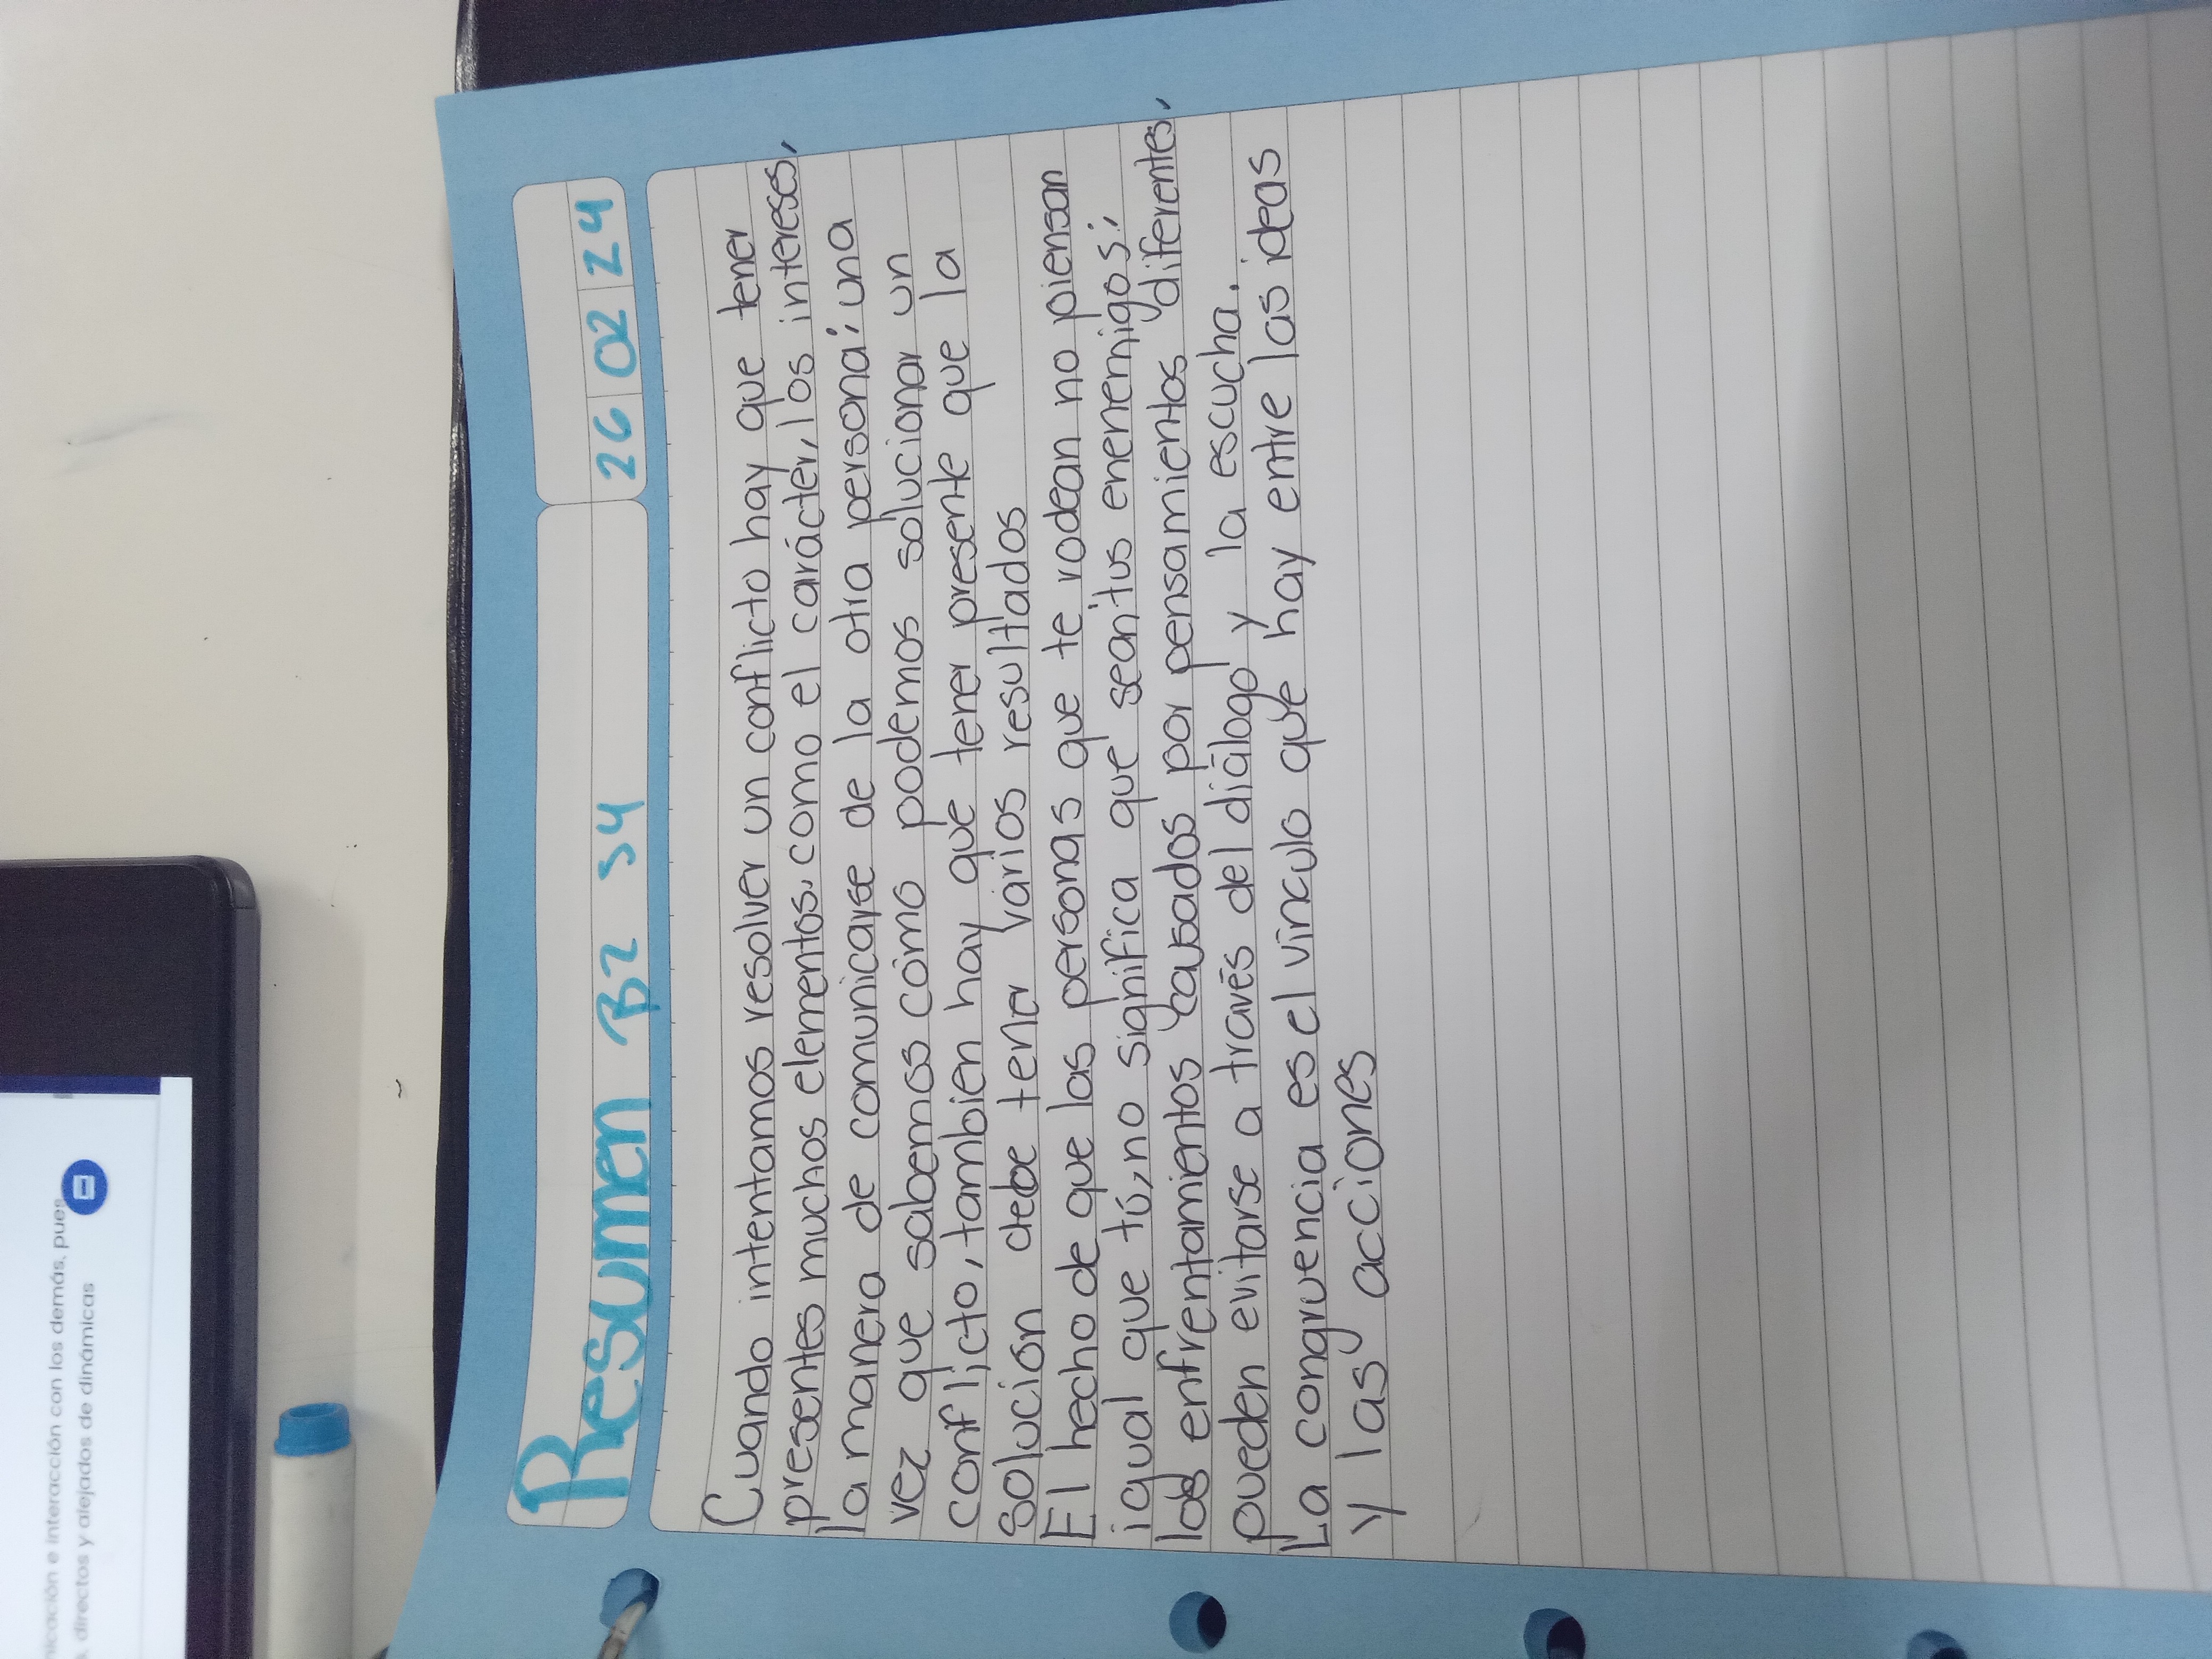 nicación e interacción con los demás, pues
, directos y alejados de dinámicas
Resumen B2 S4
26 02 24
Cuando intentamos resolver un conflicto hay que tener
presentes muchos elementos, como el carácter, los intereses,
la manera de comunicarse de la otra persona; una
vez que sabemos cómo podemos solucionar un
conflicto, tambien hay que tener presente que la
solución debe tener varios resultados
El hecho de que las personas que te rodean no piensan
igual que tú, no significa que sean tus enenemigos;
los enfrentamientos causados por pensamientos diferentes,
pueden evitarse a través del diálogo y la escucha.
La congruencia es el vinculo que hay entre las ideas
y las acciones